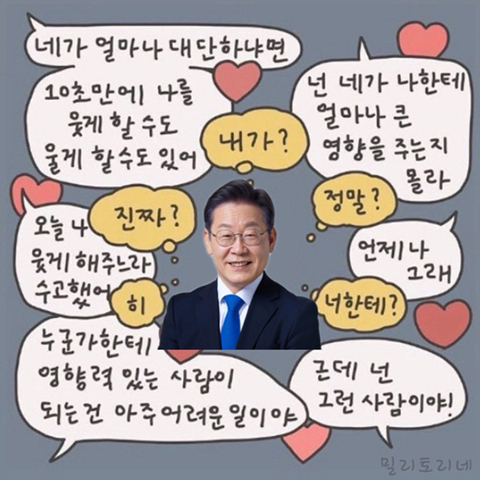 네가 얼마나 대단하냐면
10초만에 나를
웃게 할 수도
울게 할 수도 있어
넌 네가 나한테
얼마나 큰
영향을 주는지
몰라
내가?
진짜?
정말?
오늘 나
웃게 해주느라
수고했어
언제나
그래
히
너한테?
누군가한테
영향력 있는 사람이
되는건 아주 어려운 일이야
근데 넌
그런 사람이야!
밀리토리네